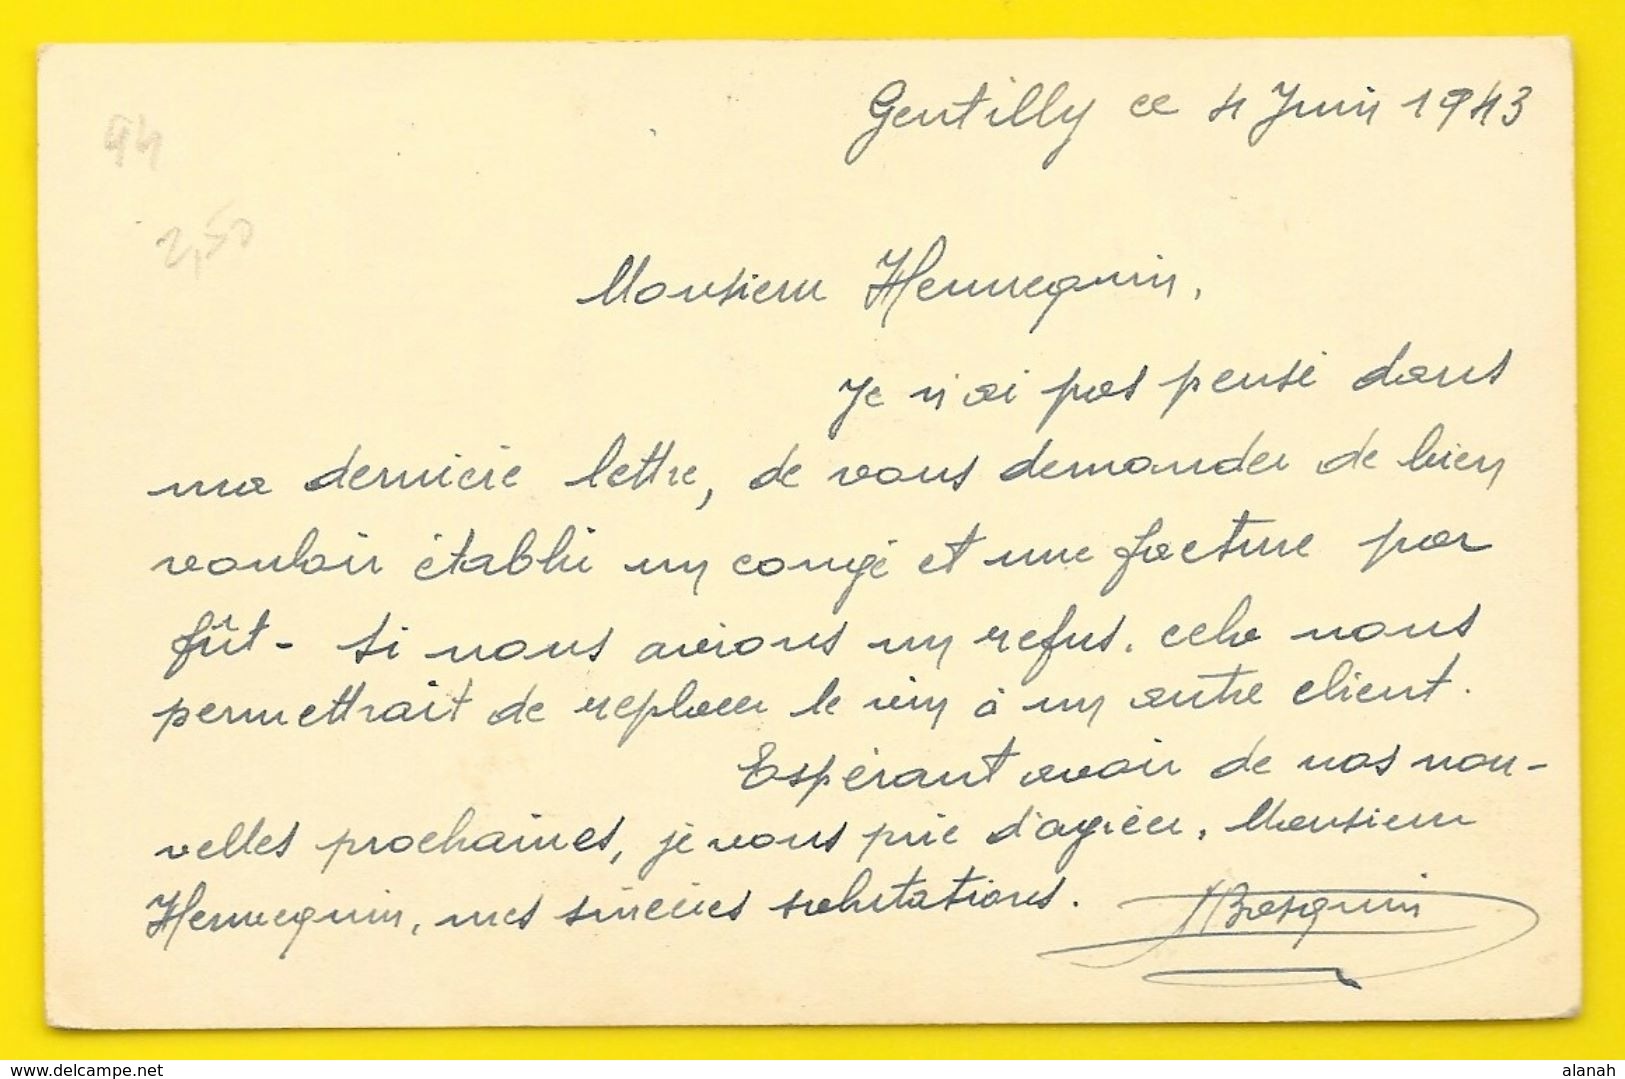 Gentilly ce 4 Juin 1943
94
2,50
Monsieur Hennequin,
Je n'ai pas pensé dans
ma dernière lettre, de vous demander de bien
vouloir établir un congé et une facture par
fût - si nous avions un refus, cela nous
permettrait de replacer le vin à un autre client.
Espérant avoir de vos nou-
velles prochaines, je vous prie d'agréer, Monsieur
Hennequin, mes sincères salutations.
Delcampe.net
alanah